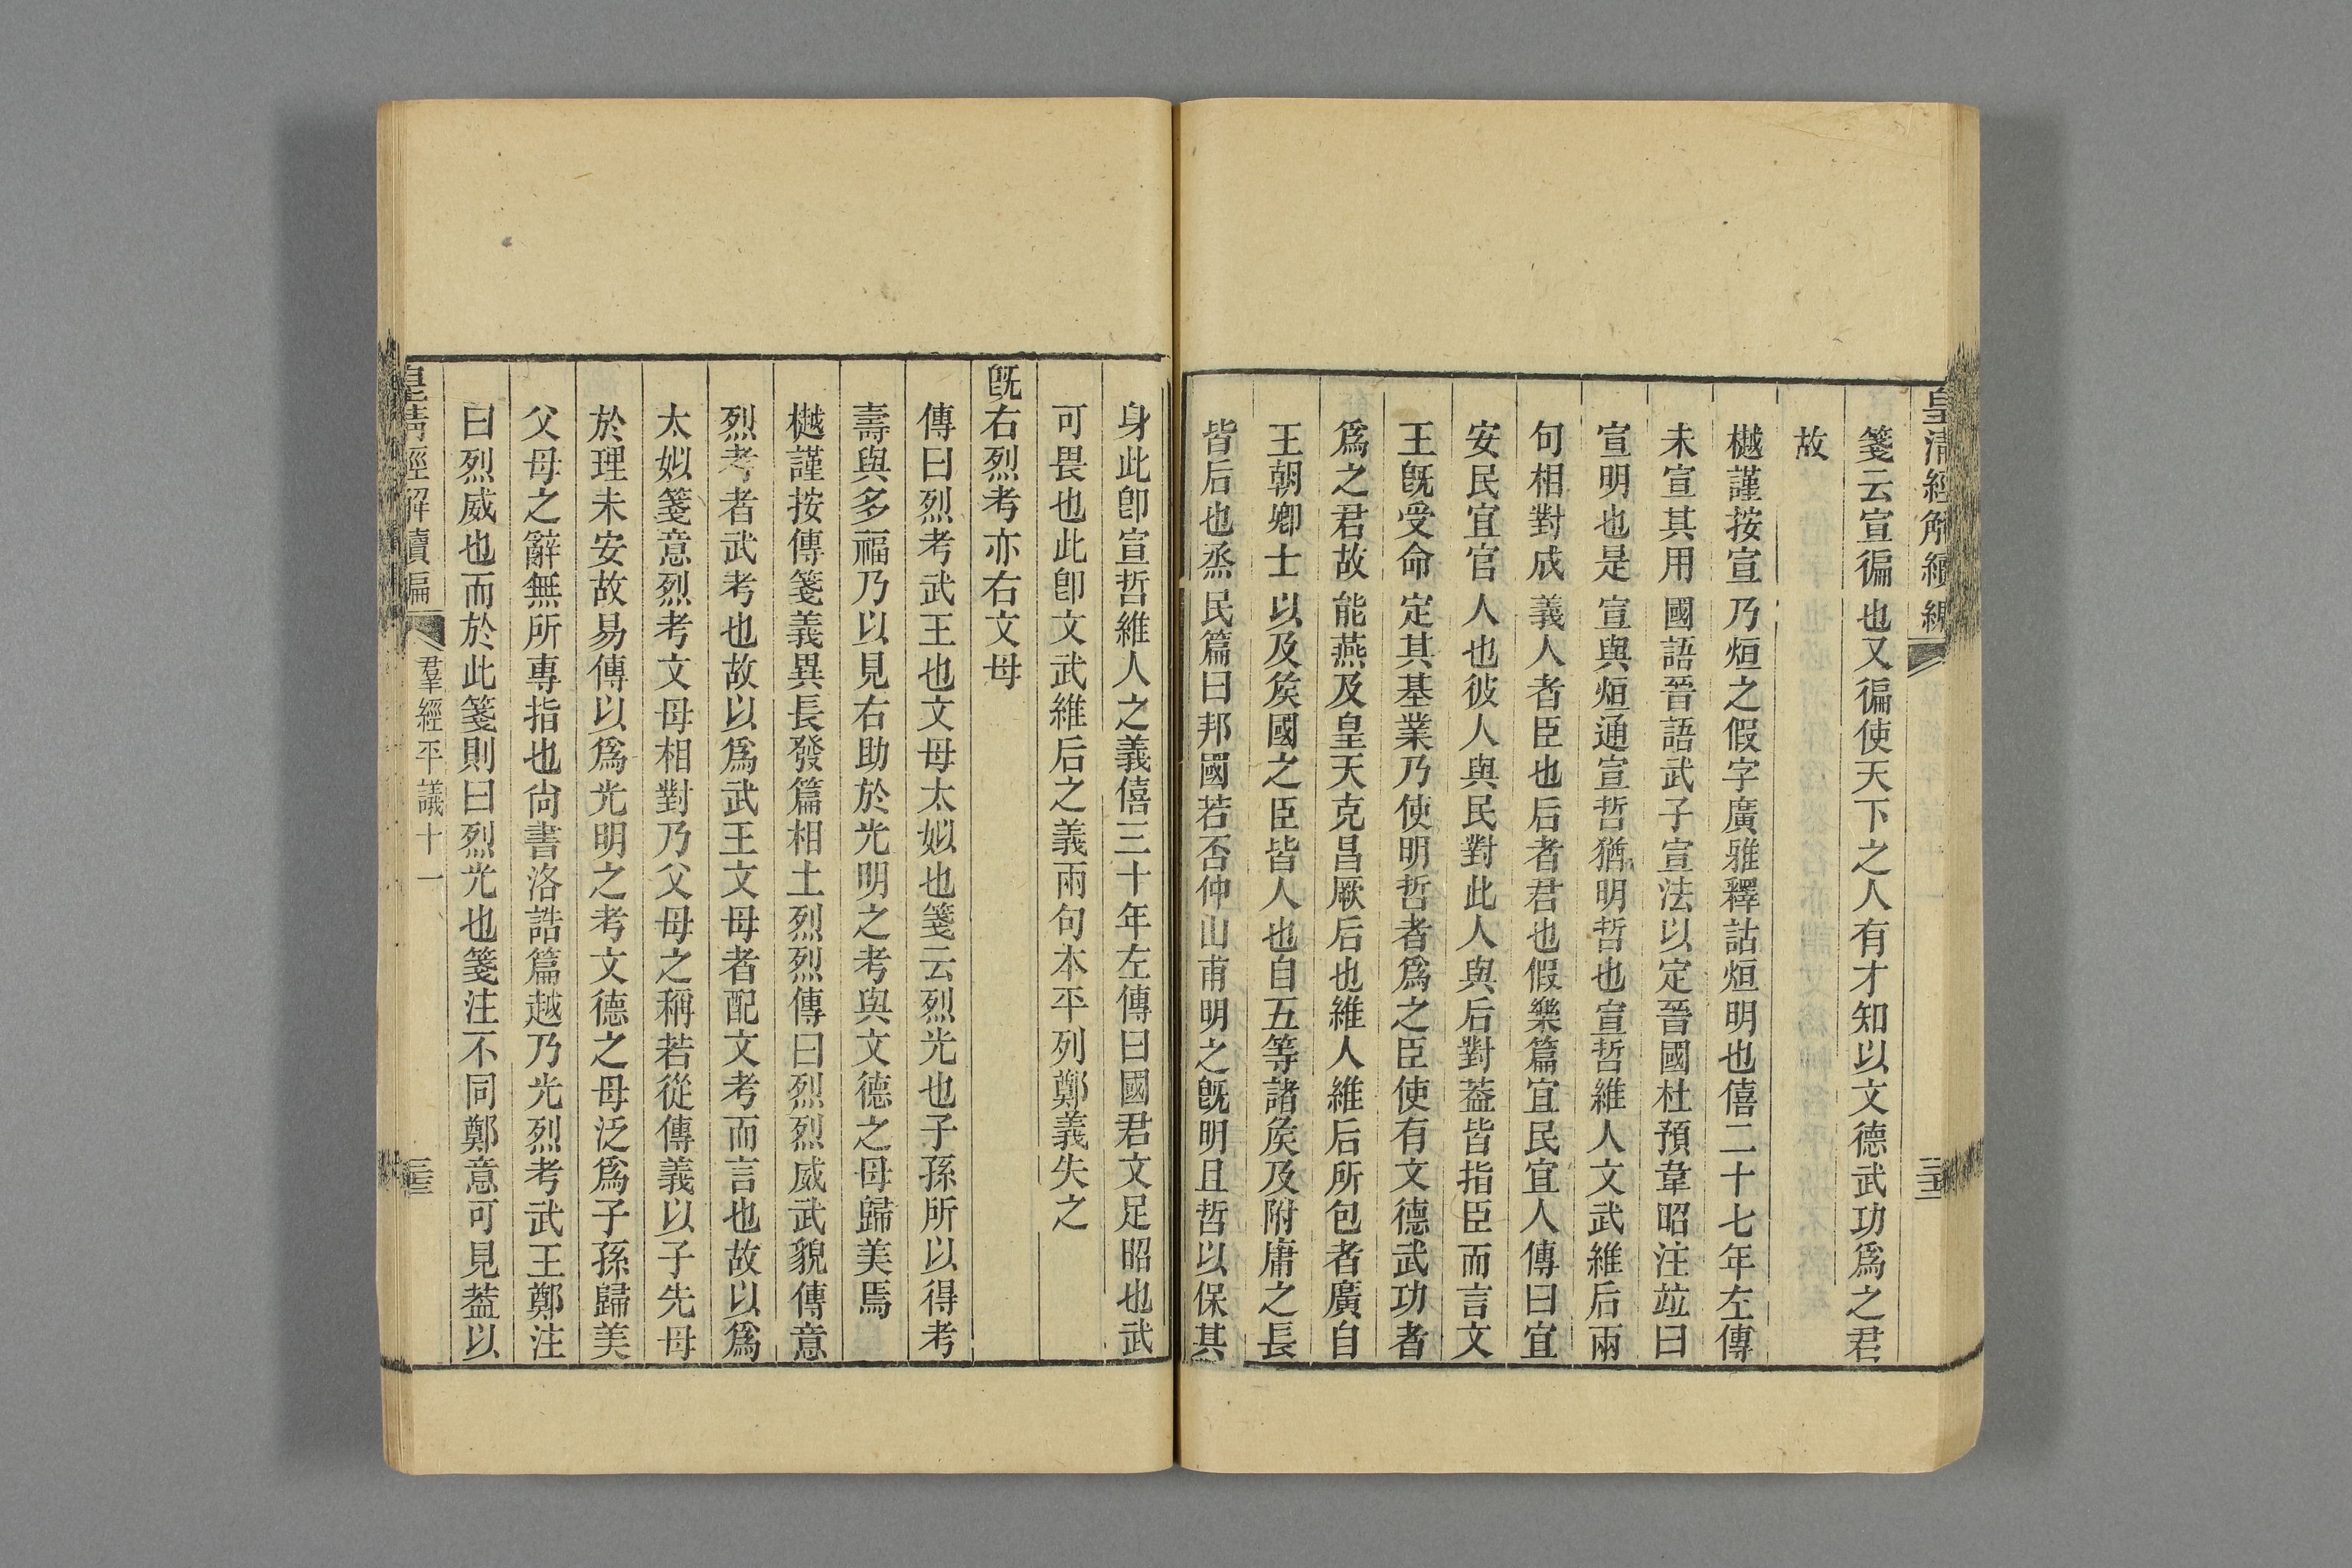 皇清經解續編
箋云宣徧也又徧使天下之人有才知以文德武功爲之君
故
樾謹按宣乃烜之假字廣雅釋詁烜明也僖二十七年左傳
未宣其用國語晉語武子宣法以定晉國杜預韋昭注竝曰
宣明也是宣與烜通宣哲猶明哲也宣哲維人文武維后兩
句相對成義人者臣也后者君也假樂篇宜民宜人傳曰宜
安民宜官人也彼人與民對此人與后對葢皆指臣而言文
王旣受命定其基業乃使明哲者爲之臣使有文德武功者
爲之君故能燕及皇天克昌厥后也維人維后所包者廣自
王朝卿士以及矦國之臣皆人也自五等諸矦及附庸之長
皆后也烝民篇曰邦國若否仲山甫明之旣明且哲以保其
身此卽宣哲維人之義僖三十年左傳曰國君文足昭也武
可畏也此卽文武維后之義兩句本平列鄭義失之
旣右烈考亦右文母
傳曰烈考武王也文母太姒也箋云烈光也子孫所以得考
壽與多福乃以見右助於光明之考與文德之母歸美焉
樾謹按傳箋義異長發篇相土烈烈傳曰烈烈威武貌傳意
烈考者武考也故以爲武王文母者配文考而言也故以爲
太姒箋意烈考文母相對乃父母之稱若從傳義以子先母
於理未安故易傳以爲光明之考文德之母泛爲子孫歸美
父母之辭無所專指也尙書洛誥篇越乃光烈考武王鄭注
曰烈威也而於此箋則曰烈光也箋注不同鄭意可見葢以
皇清經解續編 羣經平議十一